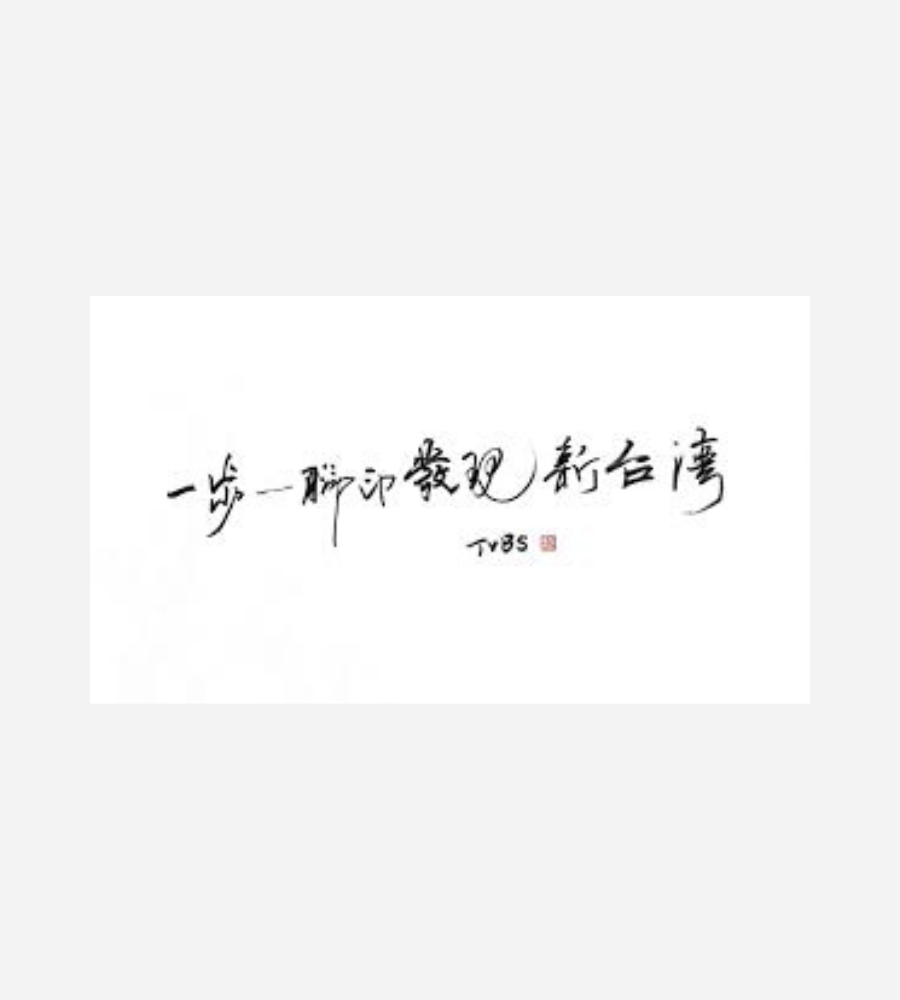 一步一腳印發現新台湾
TVBS